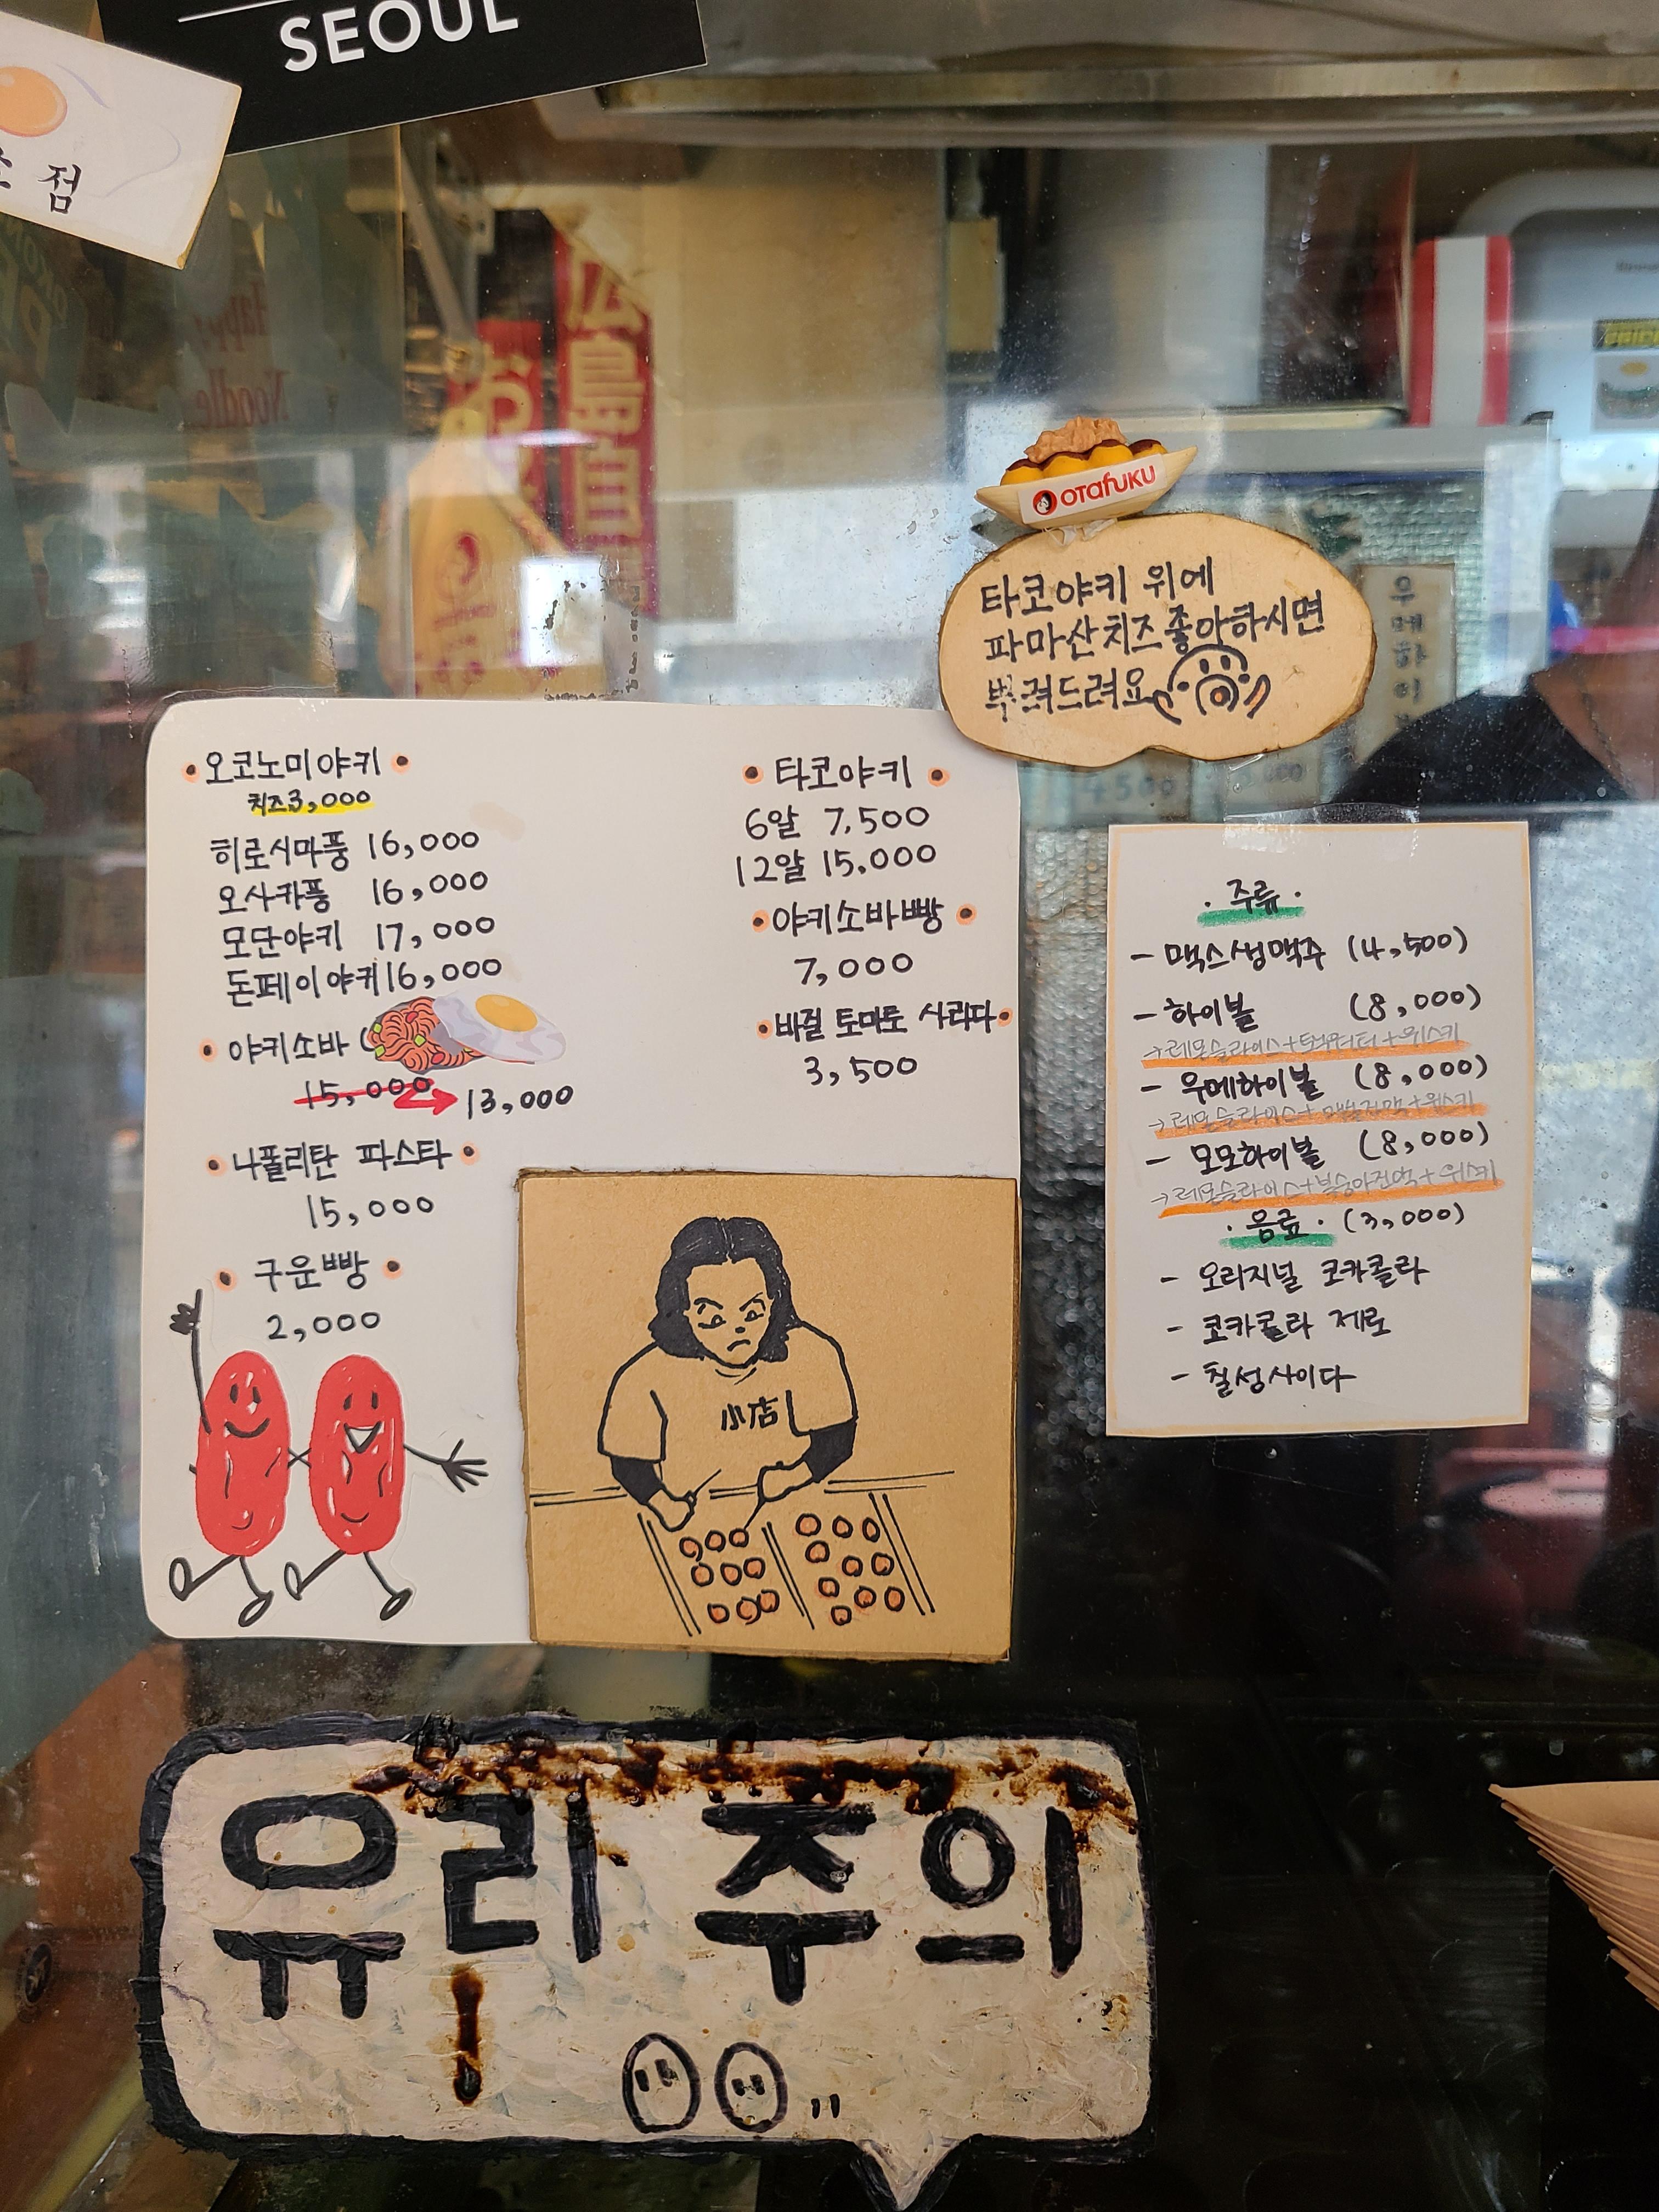 SEOUL
점
Happy
Noodle
広島自
お
OTAFUKU
타코야키 위에
파마산치즈좋아하시면
뿌려드려요
우메하이
4500
• 오코노미야키 •
치즈3,000
히로시마풍 16,000
오사카풍 16,000
모단야키 17,000
돈페이야키16,000
• 야키소바
15,000 → 13,000
• 나폴리탄 파스타 •
15,000
• 구운빵 •
2,000
• 타코야키 •
6알 7,500
12알 15,000
• 야키소바빵 •
7,000
• 바질 토마토 사라다 •
3,500
小店
· 주류 ·
- 맥스생맥주 (4,500)
- 하이볼 (8,000)
→레몬슬라이스+토닉워터+위스키
- 우메하이볼 (8,000)
→레몬슬라이스+매실진액+위스키
- 모모하이볼 (8,000)
→레몬슬라이스+복숭아진액+위스키
· 음료 · (3,000)
- 오리지널 코카콜라
- 코카콜라 제로
- 칠성사이다
유리 주의